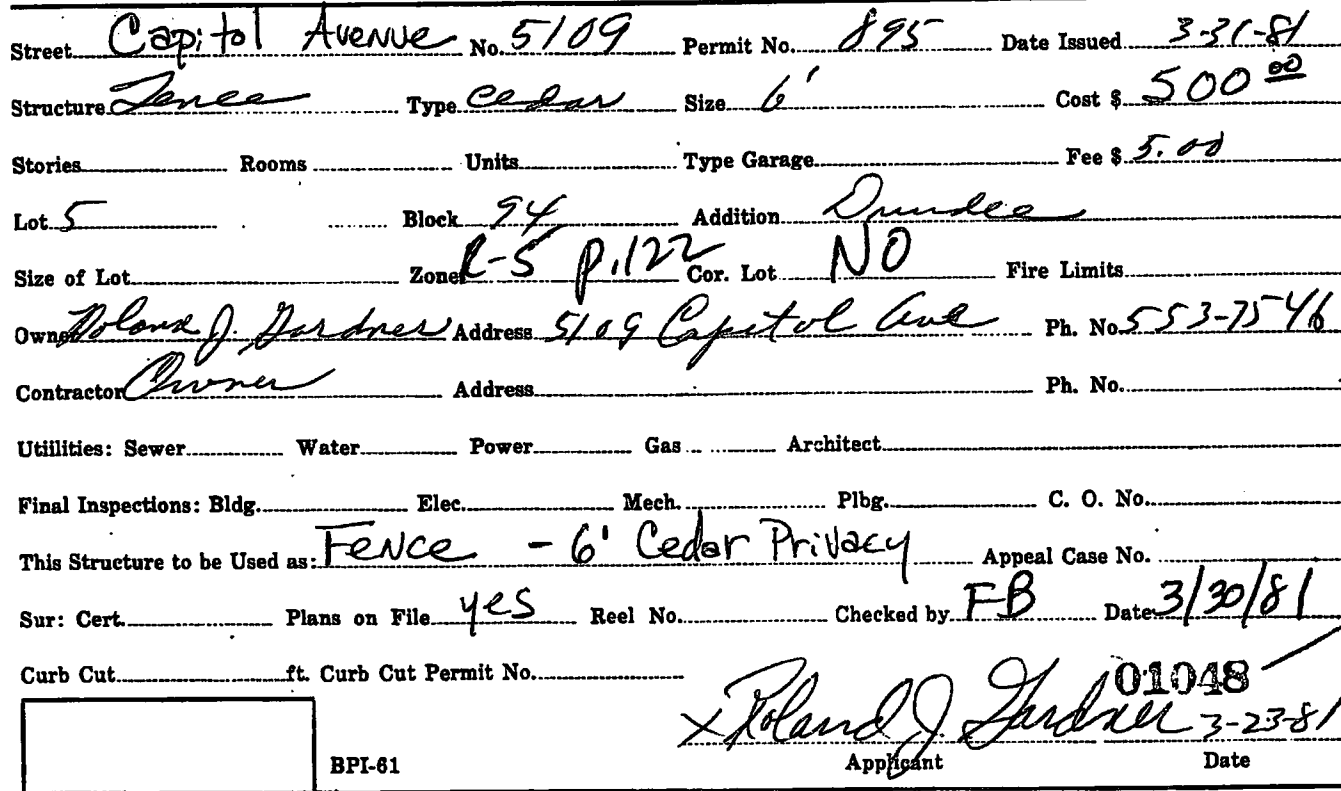 Street Capitol Avenue No. 5109 Permit No. 895 Date Issued 3-31-81
Structure Fence Type Cedar Size 6' Cost $ 500 00
Stories Rooms Units Type Garage Fee $ 5.00
Lot 5 Block 94 Addition Dundee
Size of Lot Zone R-5 P.122 Cor. Lot NO Fire Limits
Owner Roland J. Gardner Address 5109 Capitol Ave Ph. No 553-7546
Contractor Owner Address Ph. No.
Utiilities: Sewer Water Power Gas Architect
Final Inspections: Bldg. Elec. Mech. Plbg. C. O. No.
This Structure to be Used as: Fence - 6' Cedar Privacy Appeal Case No.
Sur: Cert. Plans on File yes Reel No. Checked by FB Date 3/30/81
Curb Cut ft. Curb Cut Permit No.
01048
X Roland J. Gardner 3-23-81
BPI-61 Applicant Date